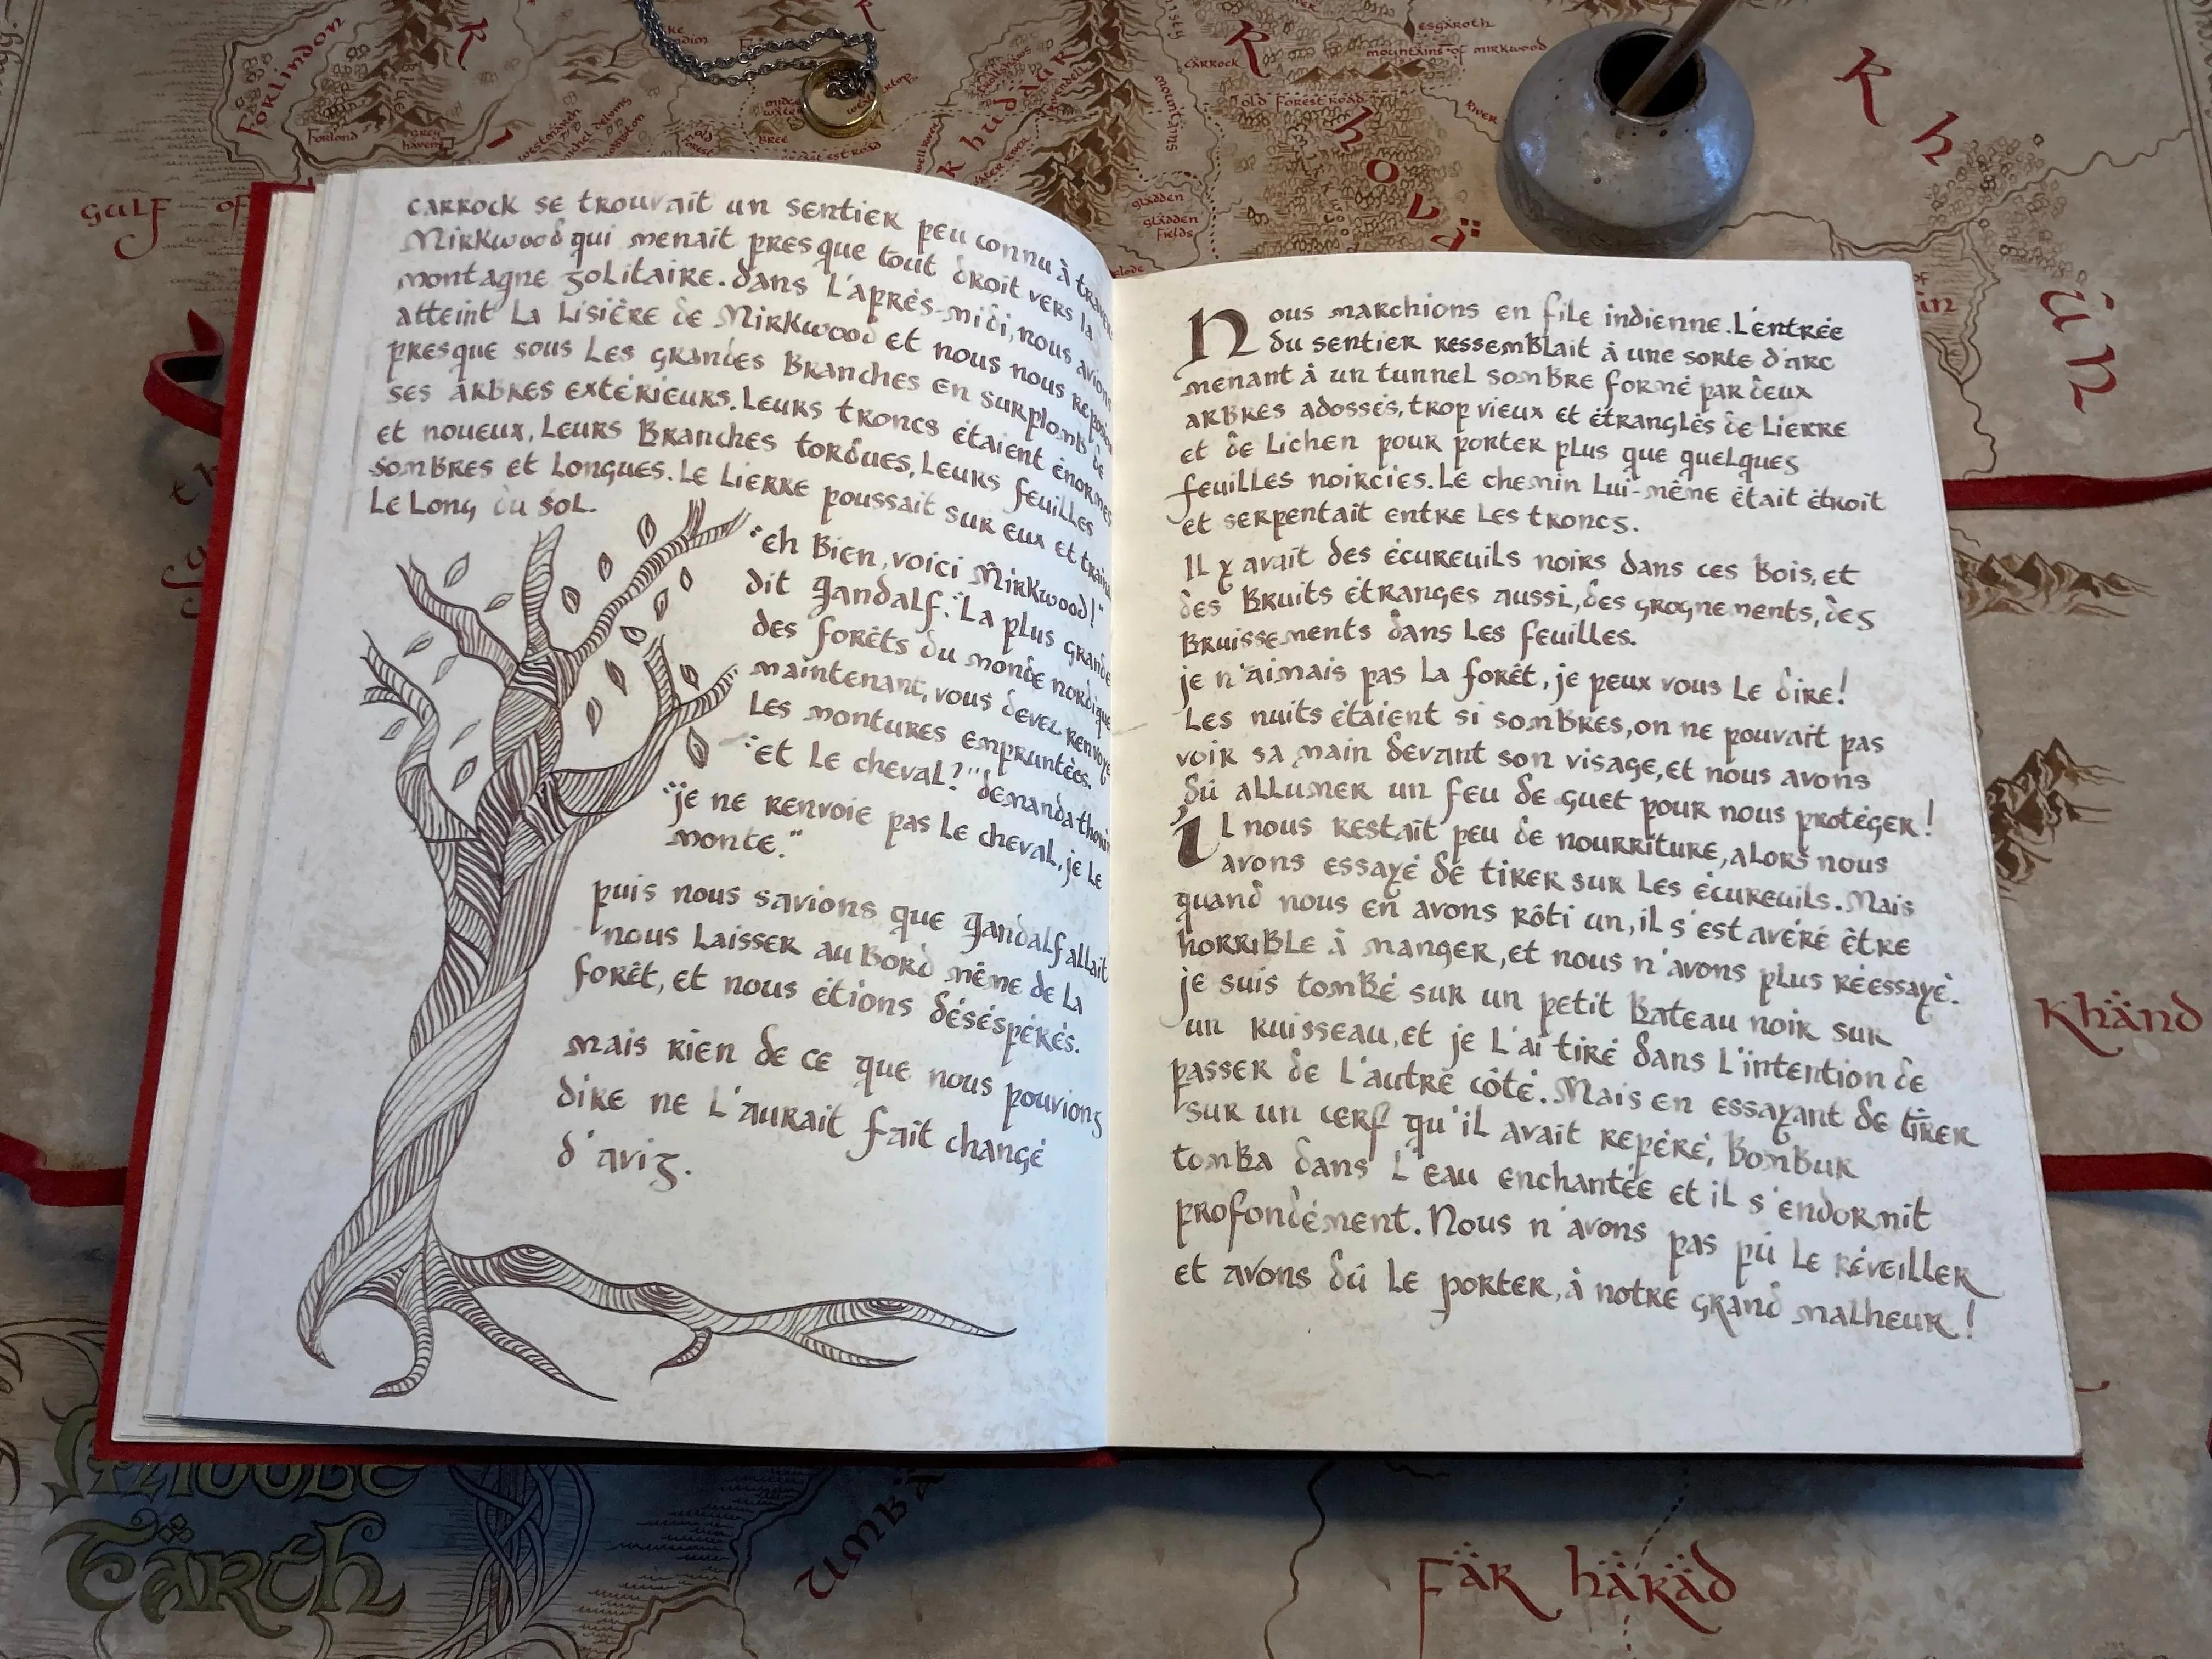 carrock se trouvait un sentier peu connu à travers
Mirkwood qui menait presque tout droit vers la
montagne solitaire. Dans l'après-midi, nous avions
atteint la lisière de Mirkwood et nous nous reposions
presque sous les grandes branches en surplomb de
ses arbres extérieurs. Leurs troncs étaient énormes
et noueux, leurs branches tordues, leurs feuilles
sombres et longues. Le lierre poussait sur eux et traînait
le long du sol.
"eh bien, voici Mirkwood!"
dit Gandalf. "La plus grande
des forêts du monde nordique
maintenant, vous devez renvoyer
les montures empruntées.
"et le cheval?" demanda thorin
"je ne renvoie pas le cheval, je le
monte."
puis nous savions que Gandalf allait
nous laisser au bord même de la
forêt, et nous étions désespérés.
mais rien de ce que nous pouvions
dire ne l'aurait fait changé
d'avis.
Nous marchions en file indienne. L'entrée
du sentier ressemblait à une sorte d'arc
menant à un tunnel sombre formé par deux
arbres adossés, trop vieux et étranglés de lierre
et de lichen pour porter plus que quelques
feuilles noircies. Le chemin lui-même était étroit
et serpentait entre les troncs.
Il y avait des écureuils noirs dans ces bois, et
des bruits étranges aussi, des grognements, des
bruissements dans les feuilles.
je n'aimais pas la forêt, je peux vous le dire!
Les nuits étaient si sombres, on ne pouvait pas
voir sa main devant son visage, et nous avons
dû allumer un feu de guet pour nous protéger!
il nous restait peu de nourriture, alors nous
avons essayé de tirer sur les écureuils. Mais
quand nous en avons rôti un, il s'est avéré être
horrible à manger, et nous n'avons plus réessayé.
je suis tombé sur un petit bateau noir sur
un ruisseau, et je l'ai tiré dans l'intention de
passer de l'autre côté. Mais en essayant de tirer
sur un cerf qu'il avait repéré, Bombur
tomba dans l'eau enchantée et il s'endormit
profondément. Nous n'avons pas pû le réveiller
et avons dû le porter, à notre grand malheur!
Forlindon
Forlond
grey
havens
gulf of
bree
Rivendell
carrock
esgaroth
mountains of mirkwood
old Forest road
River
mountains
gladden
gladden
fields
Khand
Middle
Earth
umbar
Far harad